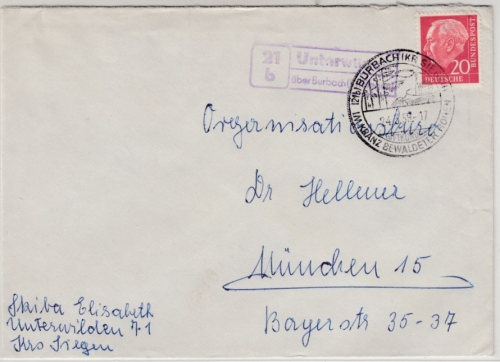 21 b
über Burbach
BURBACH (KR. SIEGEN)
(21b)
IM KRANZ BEWALDETER HÖHEN
20
DEUTSCHE BUNDESPOST
Oregernisationsbüro
Dr Hellener
München 15
Bayerstr 35-37
Skiba Elisabeth
Unterwilden 71
Krs Siegen